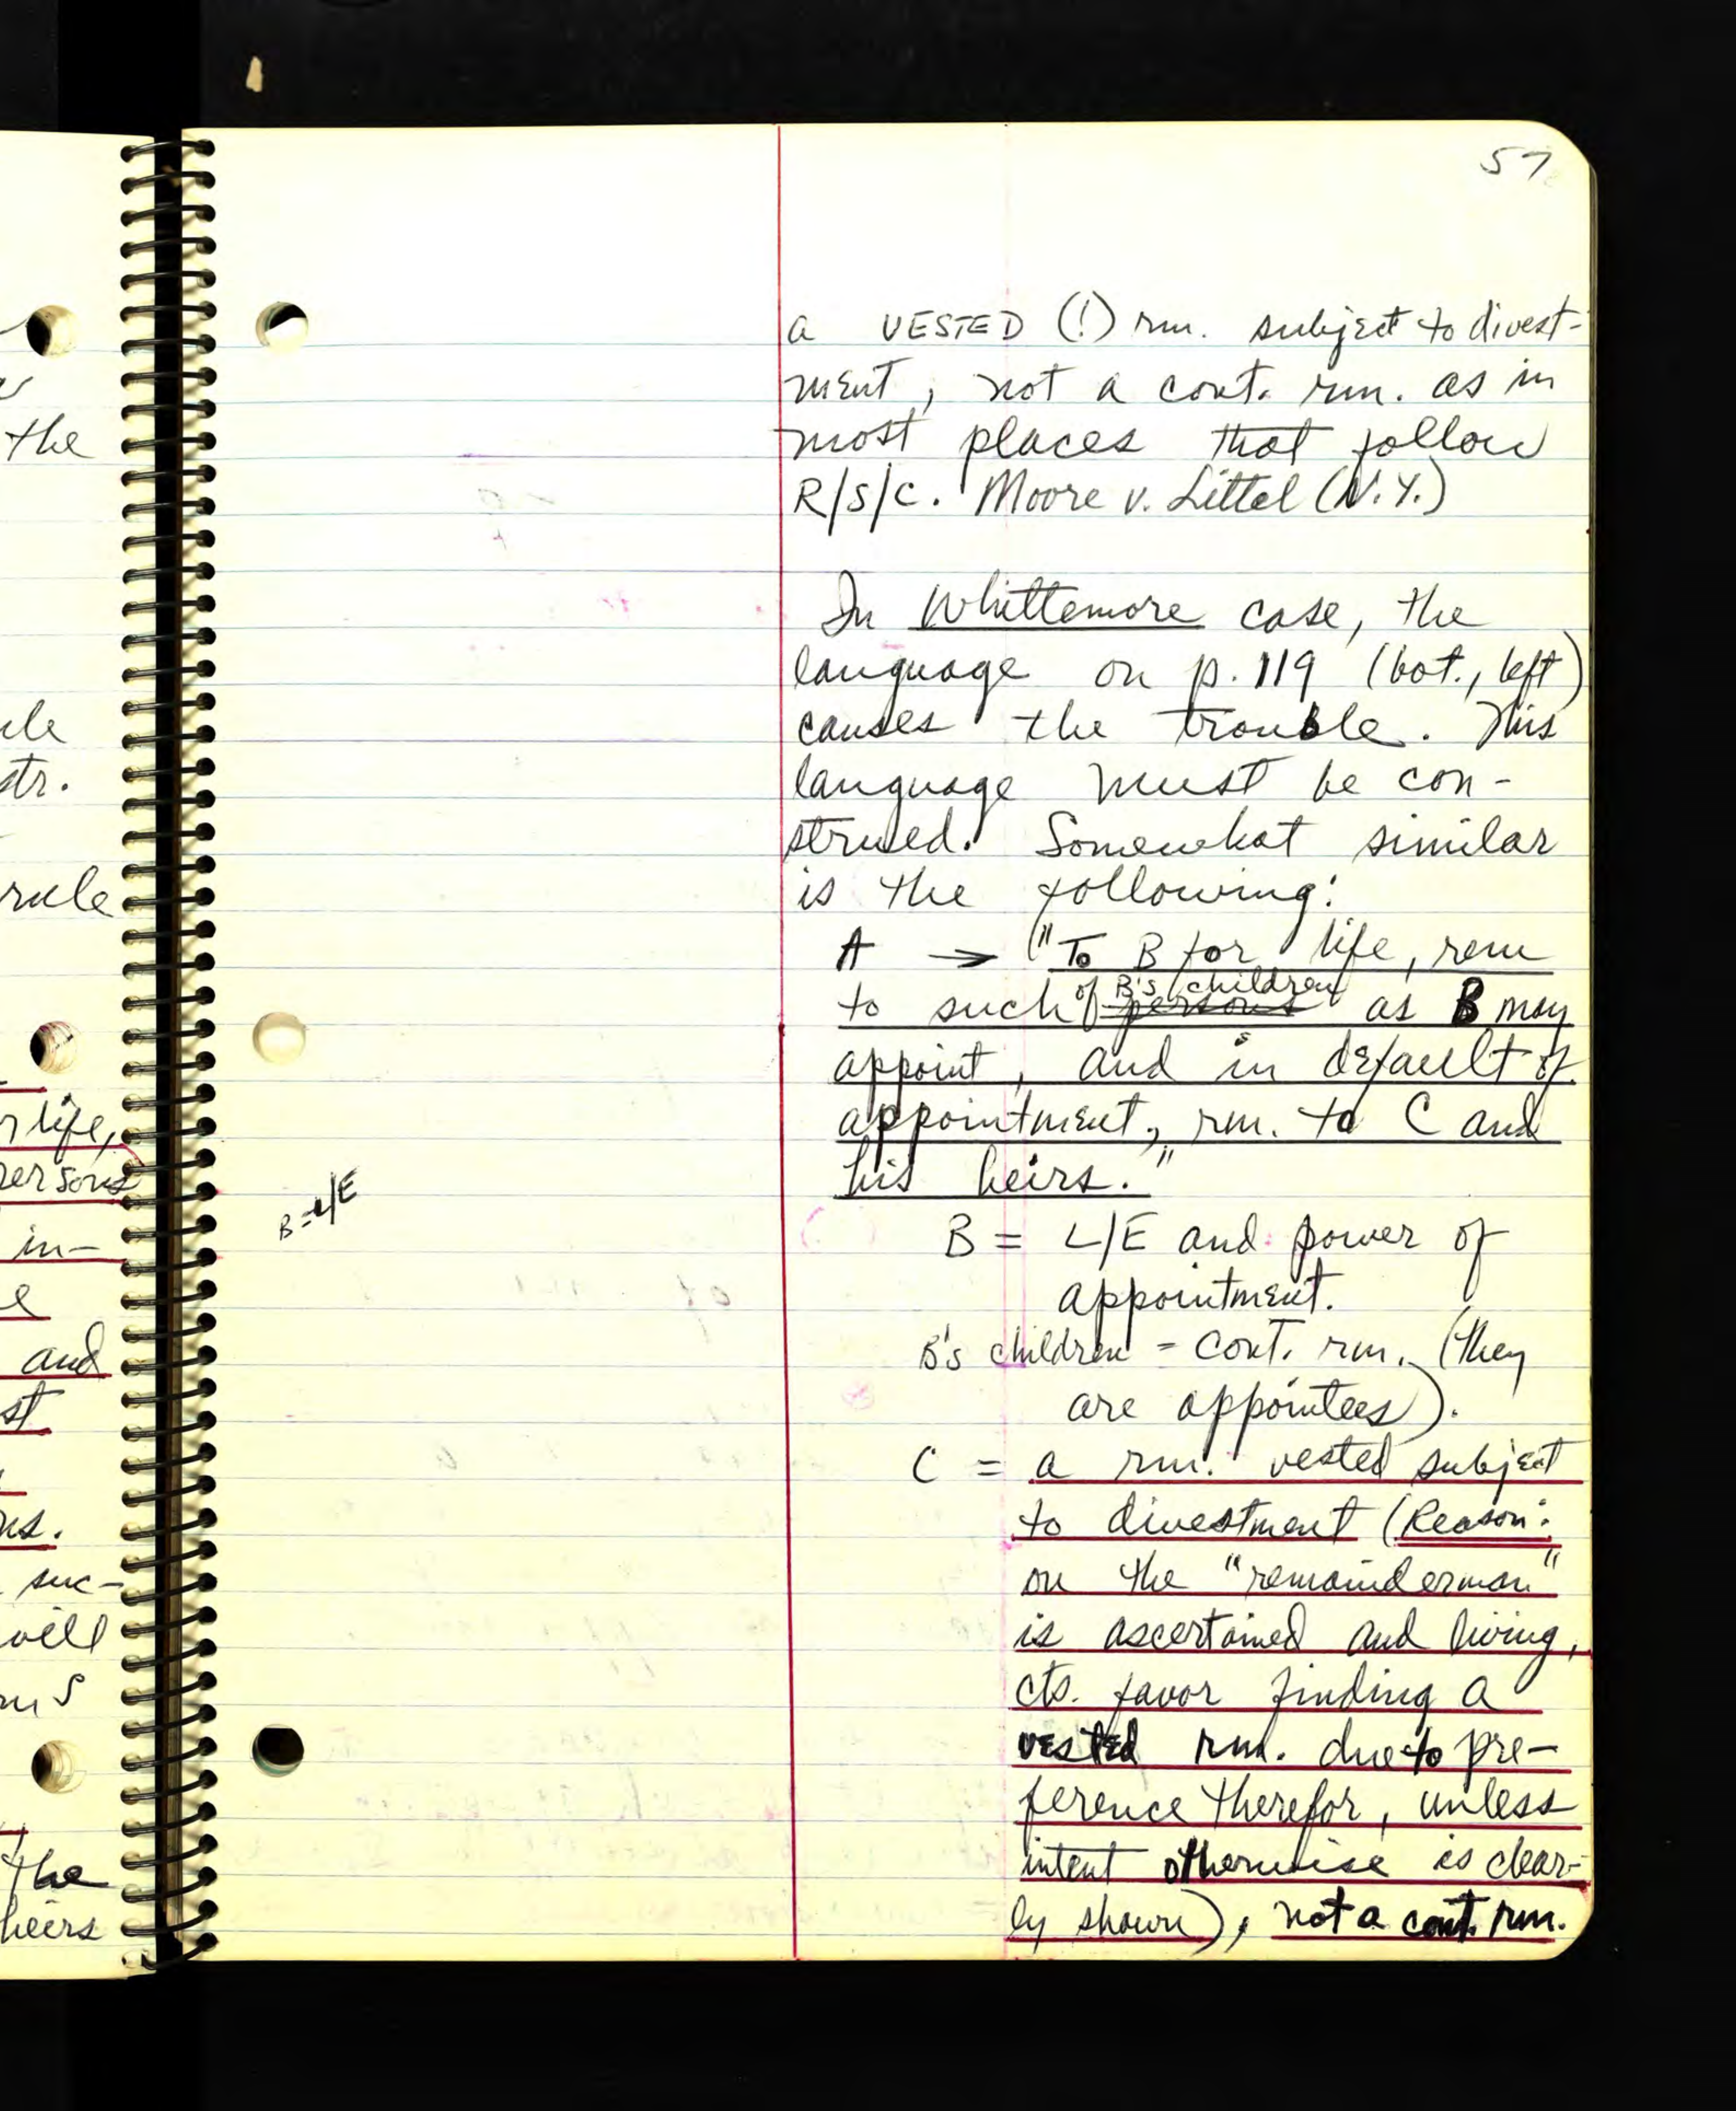 the
ule
str.
rule
r life,
persons
in-
e
and
st
ns.
suc-
will
the
heirs
57
a VESTED (!) rm. subject to divest-
ment, not a cont. rm. as in
most places that follow
R/S/C. Moore v. Littel (N.Y.)
In Whittemore case, the
language on p. 119 (bot., left)
causes the trouble. This
language must be con-
strued. Somewhat similar
is the following:
A → "To B for life, rem
to such of B's children persons as B may
appoint, and in default of
appointment, rm. to C and
his heirs."
B = L/E
B = L/E and power of
appointment.
B's children = cont. rm. (they
are appointees).
C = a rm. vested subject
to divestment (Reason:
on the "remainderman"
is ascertained and living,
cts. favor finding a
vested rm. due to pre-
ference therefor, unless
intent otherwise is clear-
ly shown), not a cont. rm.